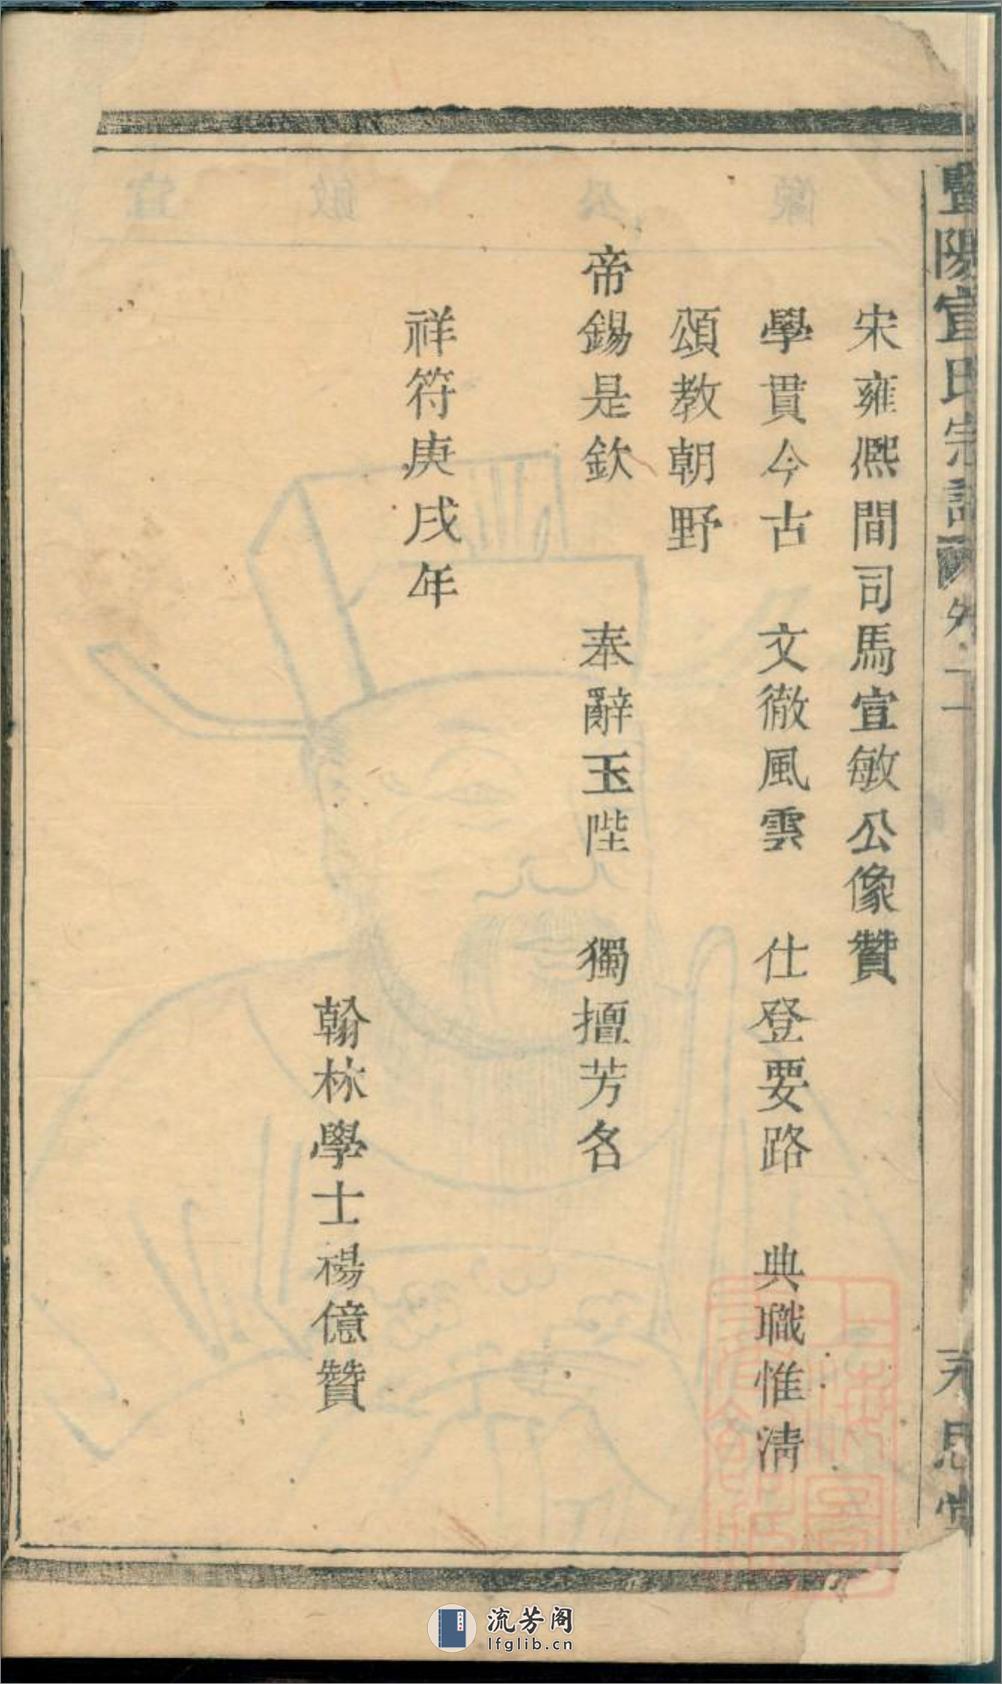 暨陽宣氏宗譜
永思堂
宋雍熈間司馬宣敏公像贊
學貫今古 文徹風雲 仕登要路 典職惟清
頌教朝野
帝錫是欽 奉辭玉陛 獨擅芳名
祥符庚戌年
翰林學士楊億贊
宣敏公像
流芳阁
lfglib.cn